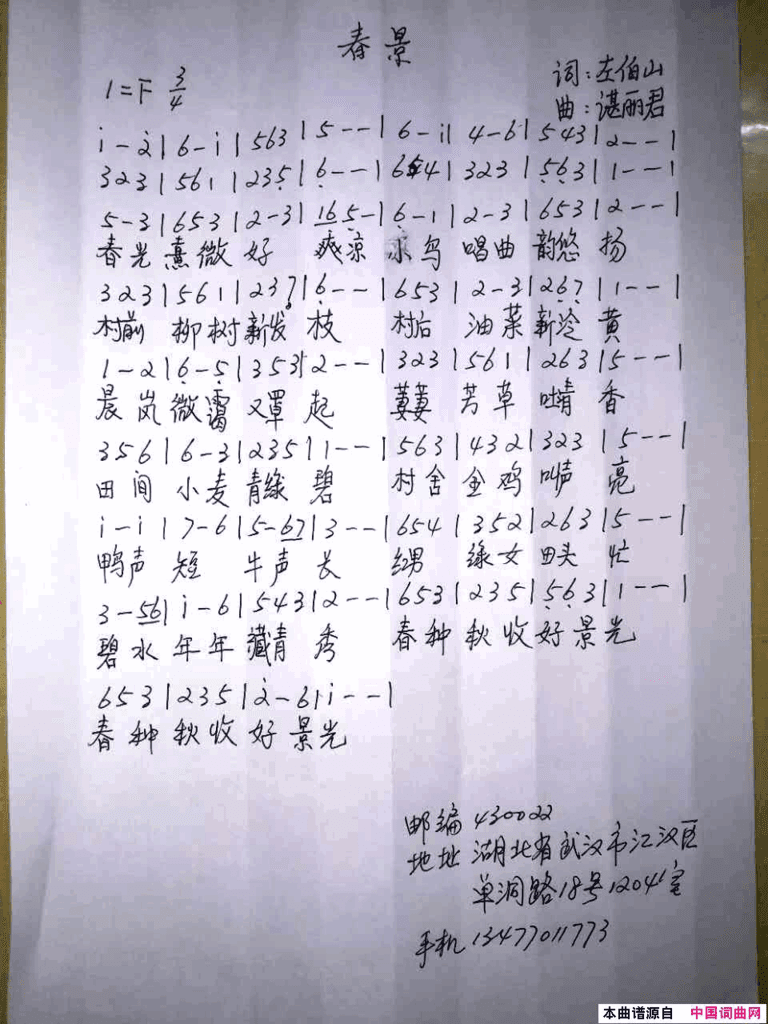 春景
1=F 3/4
词:左伯山
曲:谌丽君
i - 2̇ | 6 - i | 563 | 5 - - | 6 - i | 4 - 6 | 543 | 2 - - |
323 | 561 | 235̣ | 6̣ - - | 654 | 323 | 5̣6̣3 | 1 - - |
5 - 3 | 653 | 2 - 3 | 16̣ 5̣ - | 6̣ - 1 | 2 - 3 | 653 | 2 - - |
春光 熹微 好 爽凉 水鸟 唱曲 韵悠 扬
323 | 561 | 237̣ | 6̣ - - | 653 | 2 - 3 | 26̣7̣ | 1 - - |
村前 柳树 新发 枝 村后 油菜 新泠 黄
1 - 2 | 6̣ - 5̣ | 353 | 2 - - | 323 | 561 | 263 | 5 - - |
晨岚 微霭 又罩 起 萋萋 芳草 吐清 香
356 | 6 - 3 | 235 | 1 - - | 563 | 432 | 323 | 5 - - |
田间 小麦 青绿 碧 村舍 金鸡 叫声 亮
i - i | 7 - 6 | 5 - 67 | 3 - - | 654 | 352 | 263 | 5 - - |
鸭声 短 牛声 长 红男 绿女 田头 忙
3 - 56 | i - 6 | 543 | 2 - - | 653 | 235 | 5̣6̣3 | 1 - - |
碧水 年年 藏青 秀 春种 秋收 好景光
653 | 235 | 2̇ - 6 | i - - |
春种 秋收 好 景光
邮编 430022
地址 湖北省武汉市江汉区
单洞路18号1204室
手机 13477011773
本曲谱源自 中国词曲网